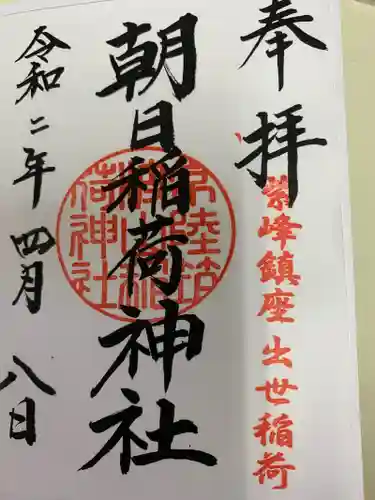 奉拝
紫峰鎮座出世稲荷
朝日稲荷神社
令和二年四月八日